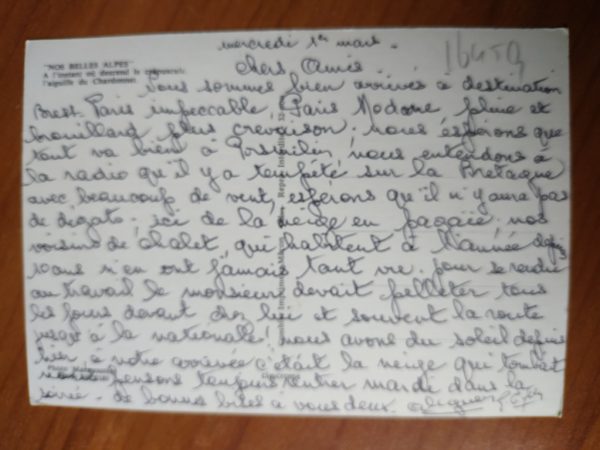 mercredi 1er mars.
"NOS BELLES ALPES"
A l'instant où descend le crépuscule
l'aiguille du Chardonnet.
chers Amis
nous sommes bien arrivés à destination
Brest Paris impeccable, Paris Modane pluie et
brouillard plus crevaison. nous espérons que
tout va bien à nous entendons à
la radio qu'il y a tempête sur la Bretagne
avec beaucoup de vent, espérons qu'il n'y aura pas
de dégats. ici de la neige en pagaïe, nos
voisins de chalet, qui habitent à l'année depuis
10 ans n'en ont jamais tant vu. pour se rendre
au travail le monsieur devait pelleter tous
les jours devant chez lui et souvent la route
jusqu'à la nationale! nous avons du soleil depuis
hier, à notre arrivée c'était la neige qui tombait
pensons toujours rentrer mardi dans la
soirée. de bonnes bises à vous deux.